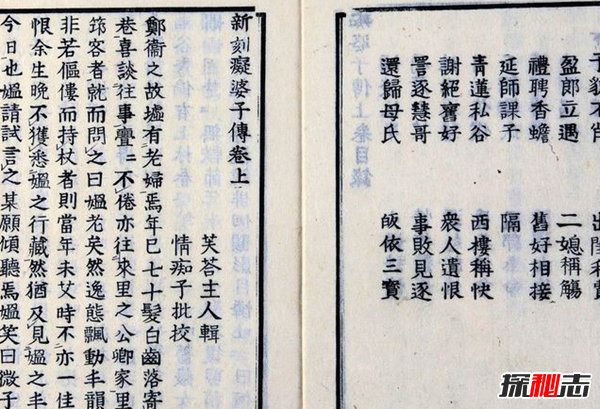 盈郎立遇　二媳稱觴
禮聘香蟾　舊好相接
延師課子　隔
青蓮私谷　西樓稱快
謝絕舊好　衆人遺恨
詈逐慧哥　事敗見逐
還歸母氏　皈依三寶
新刻癡婆子傳卷上
芙蓉主人輯
情痴子批挍
鄭衛之故墟有老婦焉年已七十髮白齒落寄
巷喜談往事亹二不倦亦往來里之公卿家里
筇客者就而問之曰媪老矣然逸態飄動丰韻
非若傴僂而持杖者則當年未艾時不亦一佳
恨余生晚不獲悉媪之行藏然猶及見媪之丰
今日也媪請試言之某願傾聽焉媪笑曰微子
探秘志